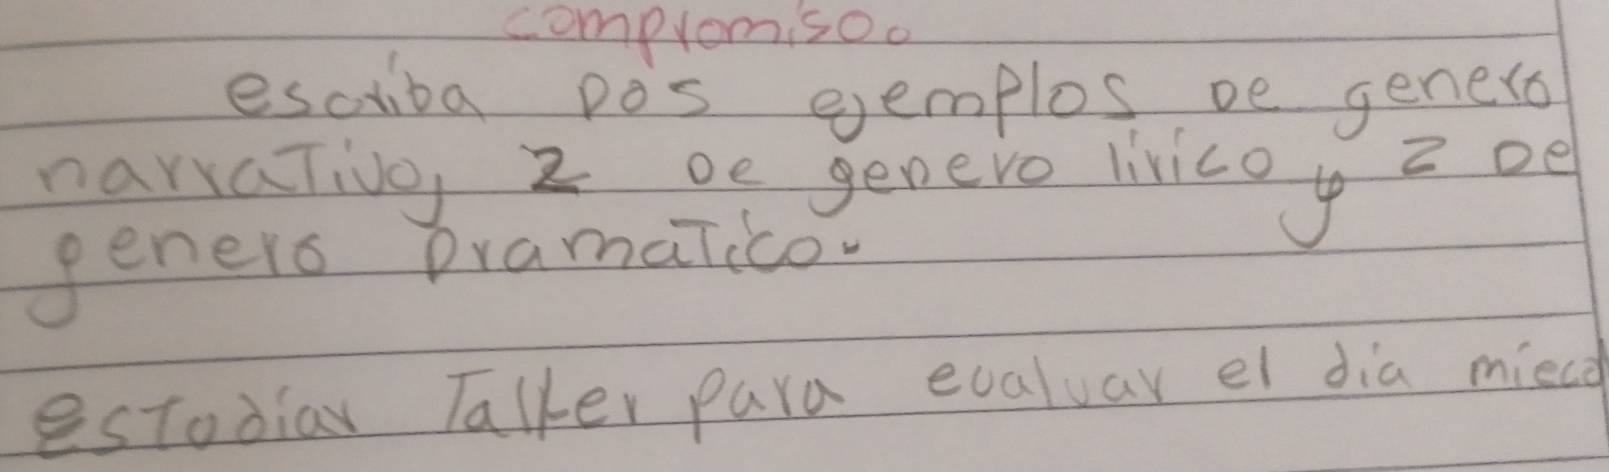 compromiso.
escriba Dos ejemplos De genero
narrativo, 2 De genero lirico y 2 De
genero Dramatico.
estodiar Taller para evaluar el dia